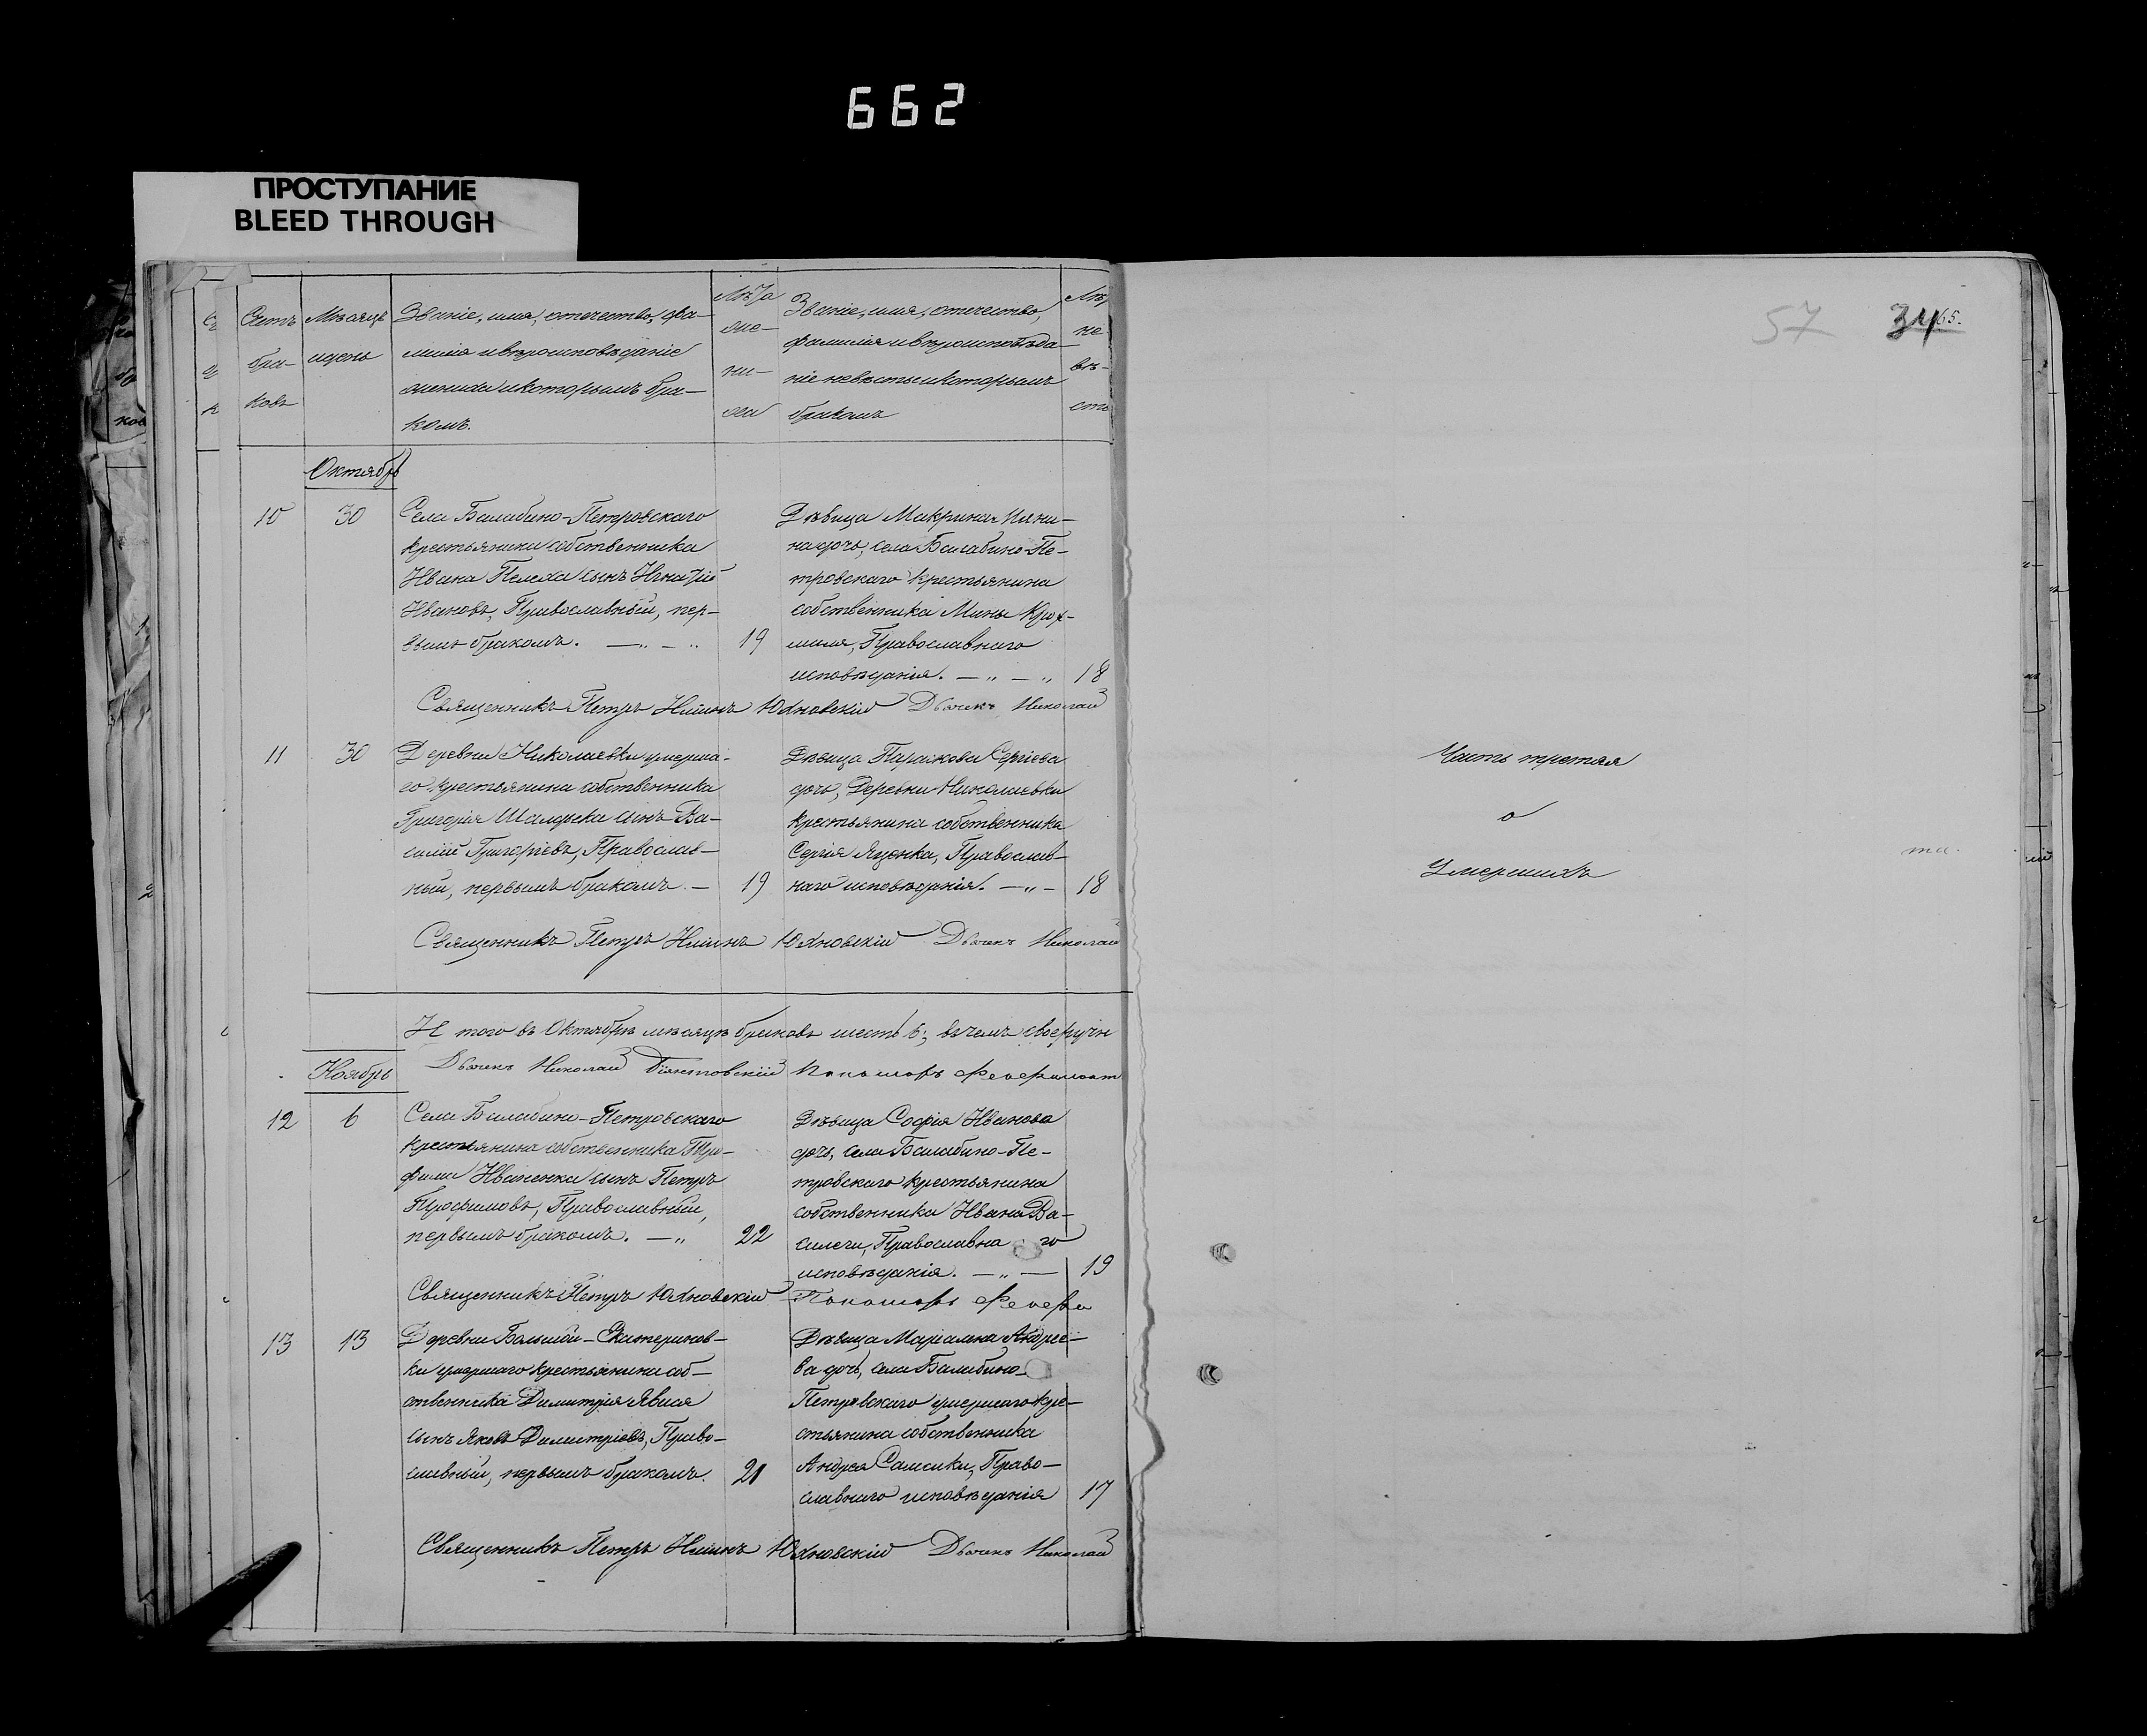 662
ПРОСТУПАНИЕ
BLEED THROUGH
Счетъ браковъ
Мѣсяцъ и день
Званіе, имя, отчество, фа-
милія и вѣроисповѣданіе
жениха и которымъ бра-
комъ.
Лѣта
же-
ни-
ха
Званіе, имя, отчество,
фамилія и вѣроисповѣда-
ніе невѣсты и которымъ
бракомъ
Лѣ
не
вѣ-
сты
Октябрь
10
30
Села Балабино-Петровскаго
крестьянина собственника
Ивана Пелеха сынъ Игнатій
Ивановъ, Православный, пер-
вымъ бракомъ.
19
Дѣвица Макрина Мини-
на дочь, села Балабино-Пе-
тровскаго крестьянина
собственника Мины
Православнаго
исповѣданія.
18
Священникъ Петръ Юхновскій Дьячекъ Николай
11
30
Деревни Николаевки умерша-
го крестьянина собственника
Григорія сынъ Ва-
силій Григоріевъ, Православ-
ный, первымъ бракомъ.
19
Дѣвица Параскева Сергіева
дочь, Деревни Николаевки
крестьянина собственника
Сергія Яценка, Православ-
наго исповѣданія.
18
Священникъ Петръ Юхновскій Дьячекъ Николай
И того въ Октябрѣ мѣсяцѣ браковъ шесть 6; въ чемъ своеручн
Ноябрь
Дьячекъ Николай Пономарь
12
6
Села Балабино-Петровскаго
крестьянина собственника Тро-
фима Иваненка сынъ Петръ
Трофимовъ, Православный,
первымъ бракомъ.
22
Дѣвица Софія Иванова
дочь, села Балабино-Пе-
тровскаго крестьянина
собственника Ивана Ва-
силечи, Православнаго
исповѣданія.
19
Священникъ Петръ Юхновскій Пономарь
13
13
Деревни Балаби-Екатеринов-
ки умершаго крестьянина соб-
ственника Димитрія
сынъ Яковъ Димитріевъ, Право-
славный, первымъ бракомъ.
21
Дѣвица Маріамна Андрее-
ва дочь, села Балабино-
Петровскаго умершаго кре-
стьянина собственника
Андрея Самсики, Право-
славнаго исповѣданія
17
Священникъ Петръ Юхновскій Дьячекъ Николай
57
34
65.
Часть третая
о
Умершихъ